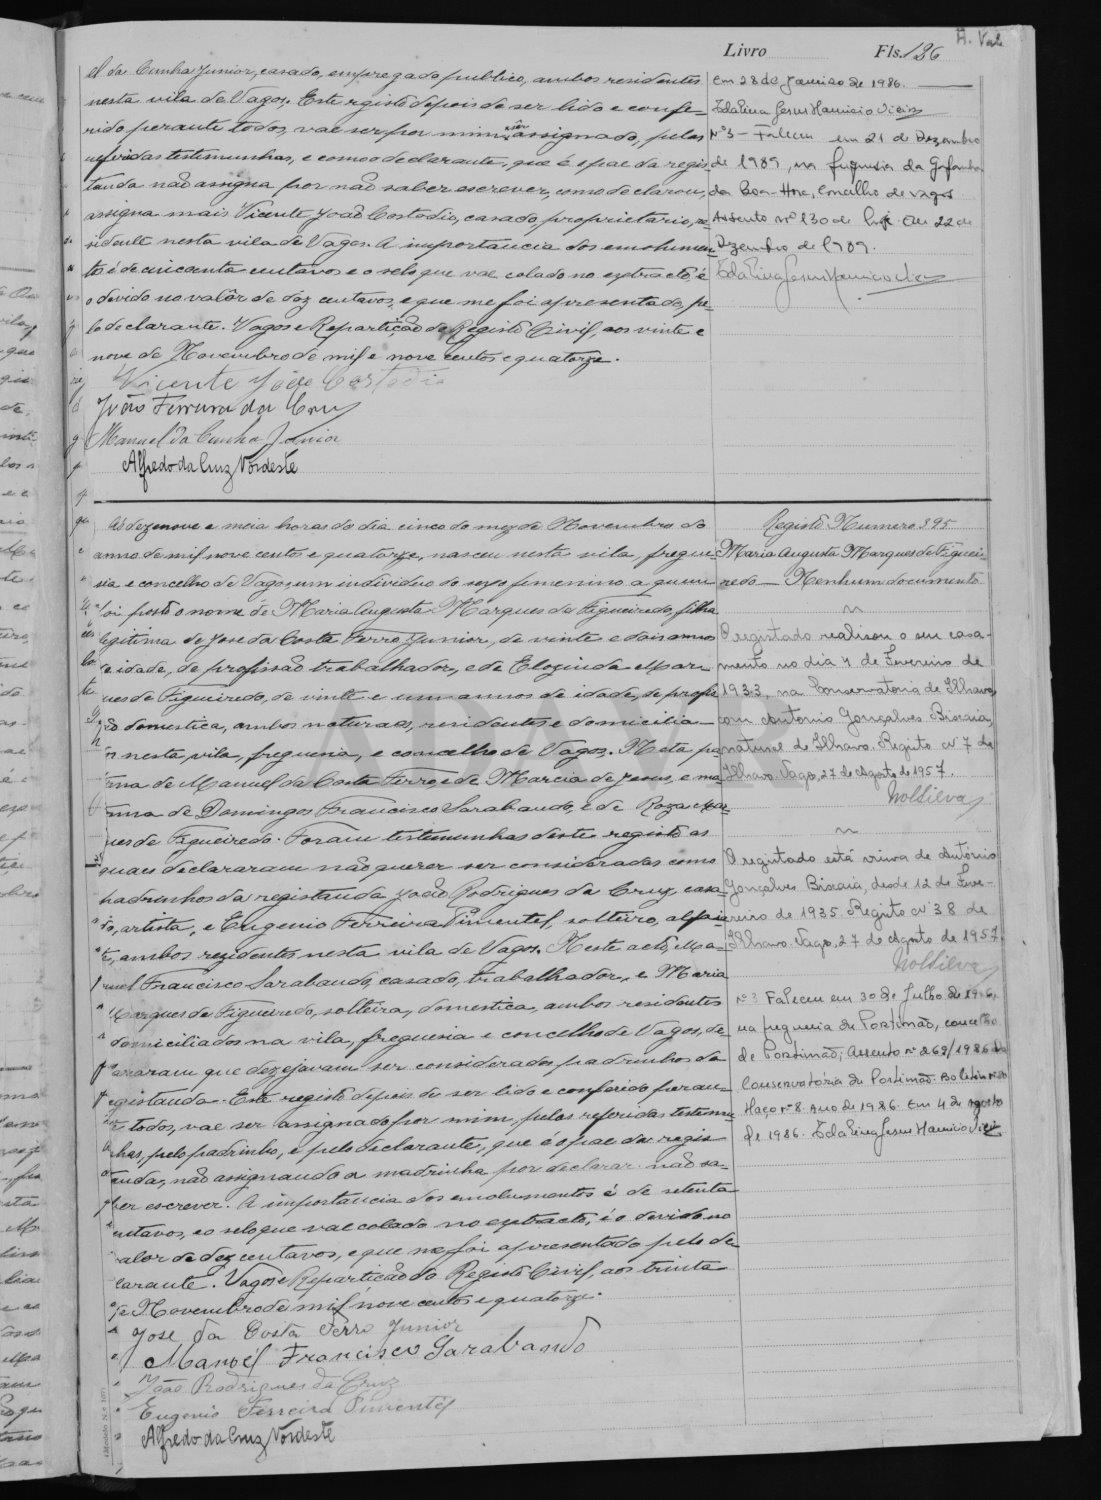 A. Vale
Livro Fls. 136
el da Cunha Junior, casado, empregado publico, ambos residentes
nesta vila de Vagos. Este registo depois de ser lido e confe-
rido perante todos, vae ser por mim assignado, pelas
referidas testemunhas, e como o declarante, que é o pae da regis-
tanda não assigna por não saber escrever, como declarou,
assigna mais Vicente João Costodio, casado, proprietario, re-
sidente nesta vila de Vagos. A importancia dos emolumen-
tos é de cincoenta centavos e o selo que vae colado no extracto, é
o devido no valôr de dez centavos, e que me foi apresentado, pe-
lo declarante. Vagos e Repartição do Registo Civil, aos vinte e
nove de Novembro de mil e nove centos e quatorze.
Vicente João Costodio
João Ferreira da Cruz
Manuel da Cunha Junior
Alfredo da Cruz Nordeste
em 28 de Janeiro de 1986.
Edalina Jesus Mauricio Vieira
Nº 3 - Faleceu em 21 de Dezembro
de 1989, na freguesia da Gafanha
da Boa-Hora, concelho de Vagos
Assento nº 130 de hoje. Em 22 de
Dezembro de 1989.
Edalina Jesus Mauricio Vieira
Ás dezenove e meia horas do dia cinco do mez de Novembro do
anno de mil nove centos e quatorze, nasceu nesta vila, fregue-
sia e concelho de Vagos, um individuo do sexo femenino a quem
foi posto o nome de Maria Augusta Marques de Figueiredo, filha
legitima de José da Costa Ferro Junior, de vinte e dois annos
de idade, de profissão trabalhador, e de Elozinda Mar-
ques de Figueiredo, de vinte e um annos de idade, de profis-
são domestica, ambos naturaes, residentes e domicilia-
dos nesta vila, freguesia, e concelho de Vagos. Neta pa-
terna de Manuel da Costa Ferro, e de Maria de Jesus, e ma-
terna de Domingos Francisco Sarabando, e de Roza Mar-
ques de Figueiredo. Foram testemunhas deste registo as
quaes declararam não querer ser consideradas como
padrinhos da registanda João Rodrigues da Cruz, casa-
do, artista, e Eugenio Ferreira Pimentel, solteiro, alfai-
ate, ambos rezidentes nesta vila de Vagos. Neste acto, Ma-
nuel Francisco Sarabando, casado, trabalhador, e Maria
Marques de Figueiredo, solteira, domestica, ambos residentes
e domiciliados na vila, freguesia e concelho de Vagos, de-
clararam que dezejavam ser considerados padrinhos da
registanda. Este registo depois de ser lido e conferido peran-
te todos, vae ser assignado por mim, pelas referidas testemu-
nhas, pelo padrinho, e pelo declarante, que é o pae da regis-
tanda, não assignando a madrinha por declarar não sa-
ber escrever. A importancia dos emolumentos é de setenta
centavos, e o selo que vae colado no extracto, é o devido no
valor de dez centavos, e que me foi apresentado pelo de-
clarante. Vagos e Repartição do Registo Civil, aos trinta
de Novembro de mil nove centos e quatorze.
José da Costa Ferro Junior
Manoel Francisco Sarabando
João Rodrigues da Cruz
Eugenio Ferreira Pimentel
Alfredo da Cruz Nordeste
Registo Numero 395
Maria Augusta Marques de Figuei-
redo — Nenhum documento
O registado realisou o seu casa-
mento no dia 4 de Fevereiro de
1933, na Conservatoria de Ilhavo,
com Antonio Gonçalves Bixaia,
natural de Ilhavo. Registo nº 7 de
Ilhavo. Vagos, 27 de Agosto de 1957.
O registado está viuva de António
Gonçalves Bixaia, desde 12 de Feve-
reiro de 1935. Registo nº 38 de
Ilhavo. Vagos, 27 de Agosto de 1957.
Nº 3 Faleceu em 30 de Julho de 1986,
na freguesia de Portimão, concelho
de Portimão; Assento nº 269/1986 da
Conservatória de Portimão. Boletim nº
Maço nº 8. Ano de 1986. Em 4 de Agosto
de 1986. Edalina Jesus Mauricio Vieira
ADAVR